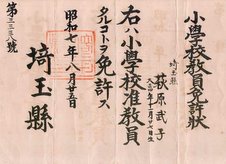 小學校教員免許狀
埼玉縣
荻原武子
大正二年十一月廿七日生
右ハ小學校准教員
タルコトヲ免許ス
昭和七年八月廿五日
埼玉縣
第三三八號